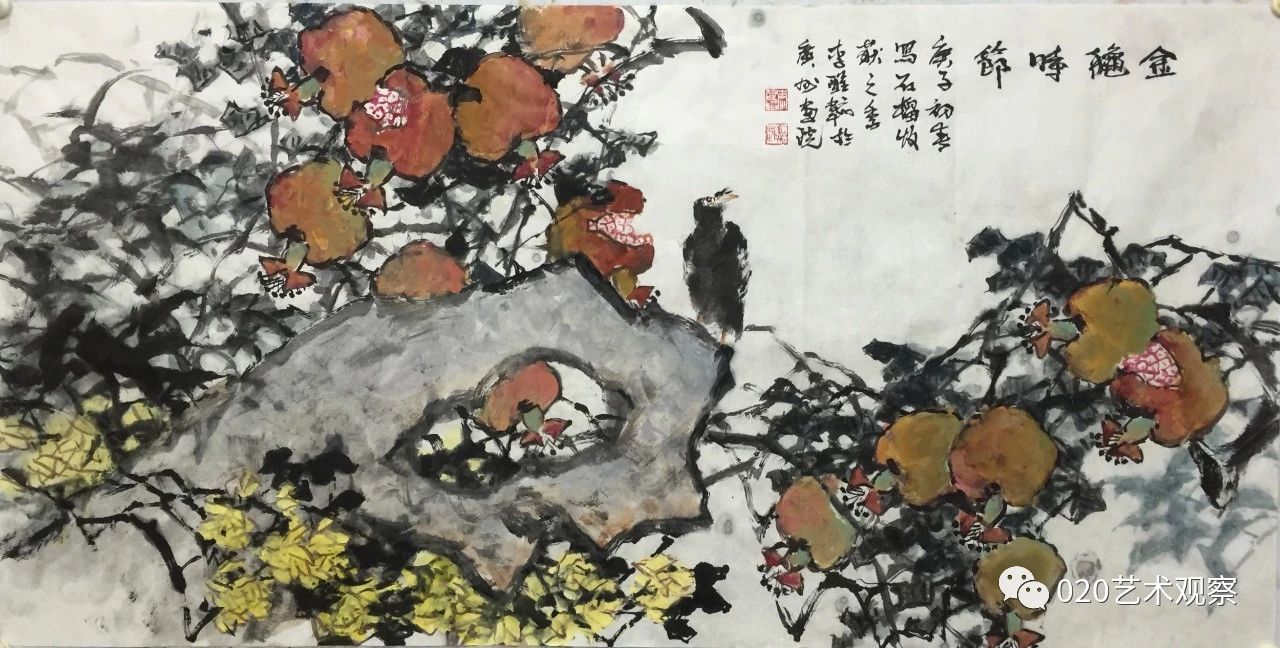 金龝時節
庚子初春
写石榴收
获之季
李醒韜於
廣州画院
020艺术观察